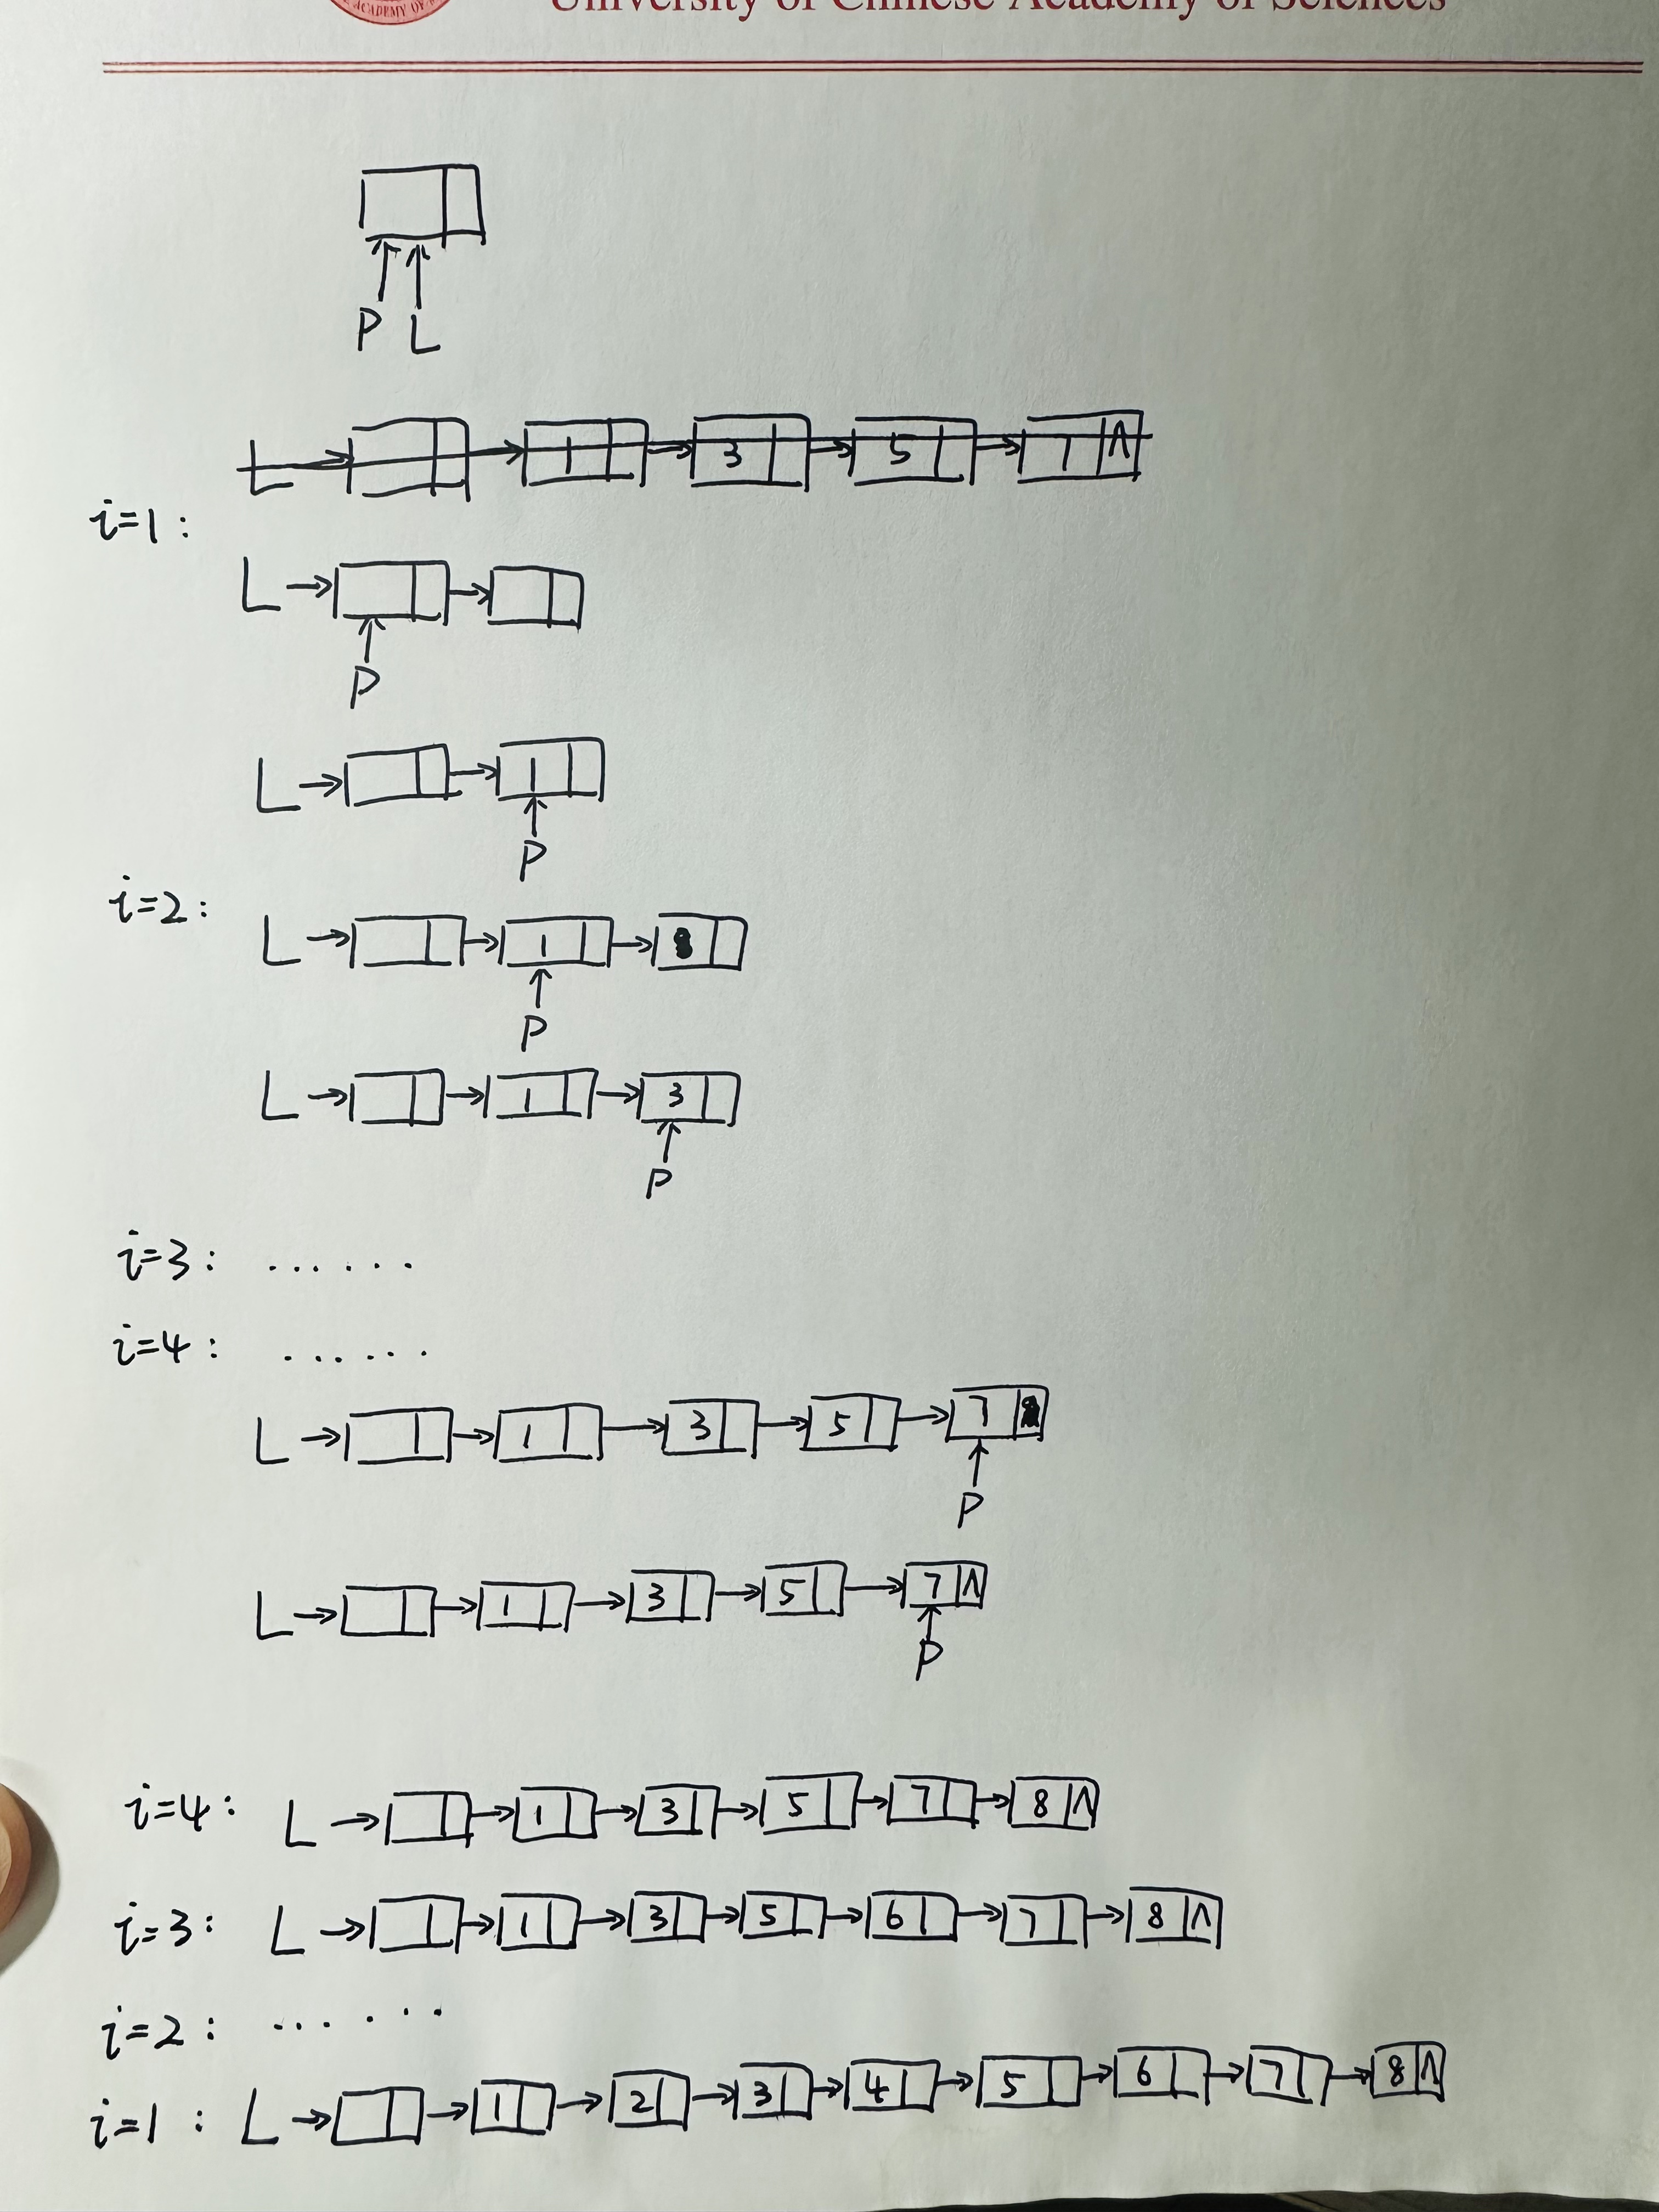 ACADEMY OF
University of Chinese Academy of Sciences
P L
L 1 3 5 7 ∧
i=1:
L
P
L 1
P
i=2:
L 1
P
L 1 3
P
i=3: ......
i=4: ......
L 1 3 5 7
P
L 1 3 5 7 ∧
P
i=4: L 1 3 5 7 8 ∧
i=3: L 1 3 5 6 7 8 ∧
i=2: ......
i=1: L 1 2 3 4 5 6 7 8 ∧